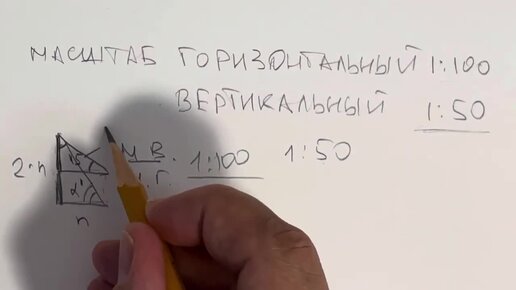 МАСШТАБ ГОРИЗОНТАЛЬНЫЙ 1:100
ВЕРТИКАЛЬНЫЙ 1:50
М.В. 1:100 1:50
2·n Г.
n